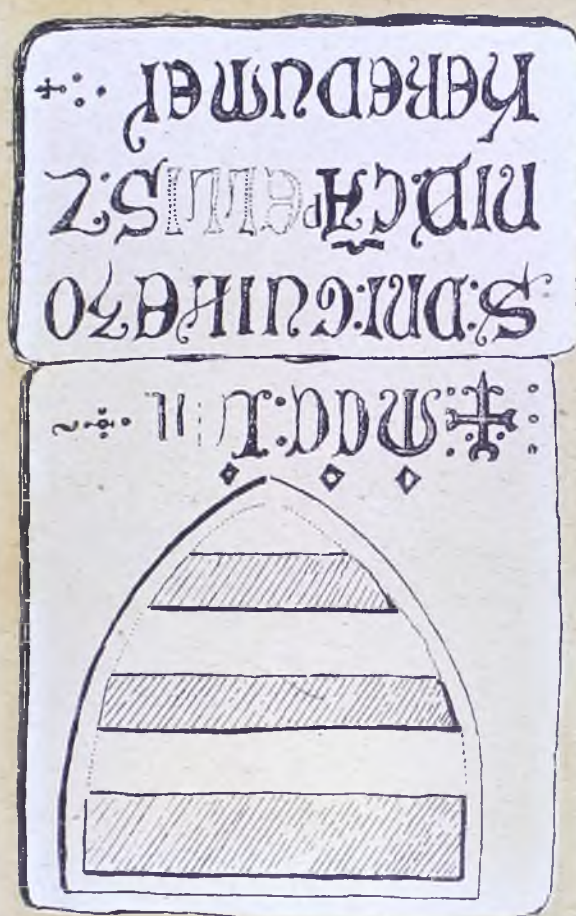 MCC:L II
S:DNI:GUILEZO
NI D CAPELLIS:Z
HEREDUM EI